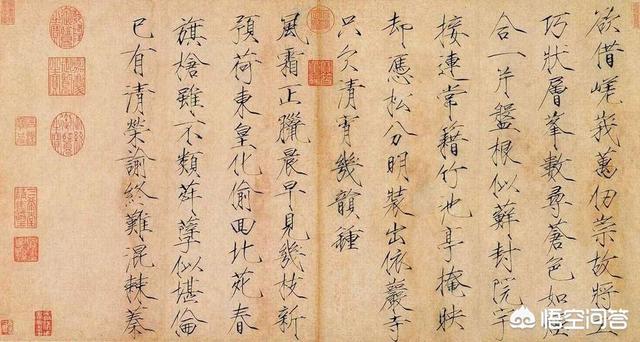 欲借嵯峩萬仞崇故將工
巧狀層峯數尋蒼色如煙
合一片盤根似蘚封院宇
接連常藉竹池亭掩映
却憑松分明裝出依巖寺
只欠清宵幾韻鍾
風霜正臘晨早見幾枝新
預荷東皇化偷回北苑春
旗槍雖不類荈孽似堪倫
已有清榮諭終難混棘蓁
悟空问答